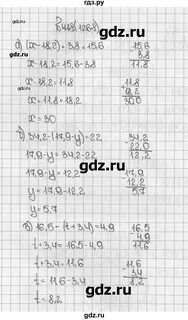 гдз.ру
№448(1268)
а) (x-18,2)+3,8=15,6
x-18,2=15,6-3,8
x-18,2=11,8
x=11,8+18,2
x=30
15,6
3,8
11,8
11,8
18,2
30,0
б) 34,2-(17,9-y)=22
17,9-y=34,2-22
17,9-y=12,2
y=17,9-12,2
y=5,7
34,2
22,0
12,2
17,9
12,2
5,7
в) 16,5-(t+3,4)=4,9
t+3,4=16,5-4,9
t+3,4=11,6
t=11,6-3,4
t=8,2
16,5
4,9
11,6
11,6
3,4
8,2
gdz.ru
gdz.ru
gdz.ru
gdz.ru
gdz.ru
gdz.ru